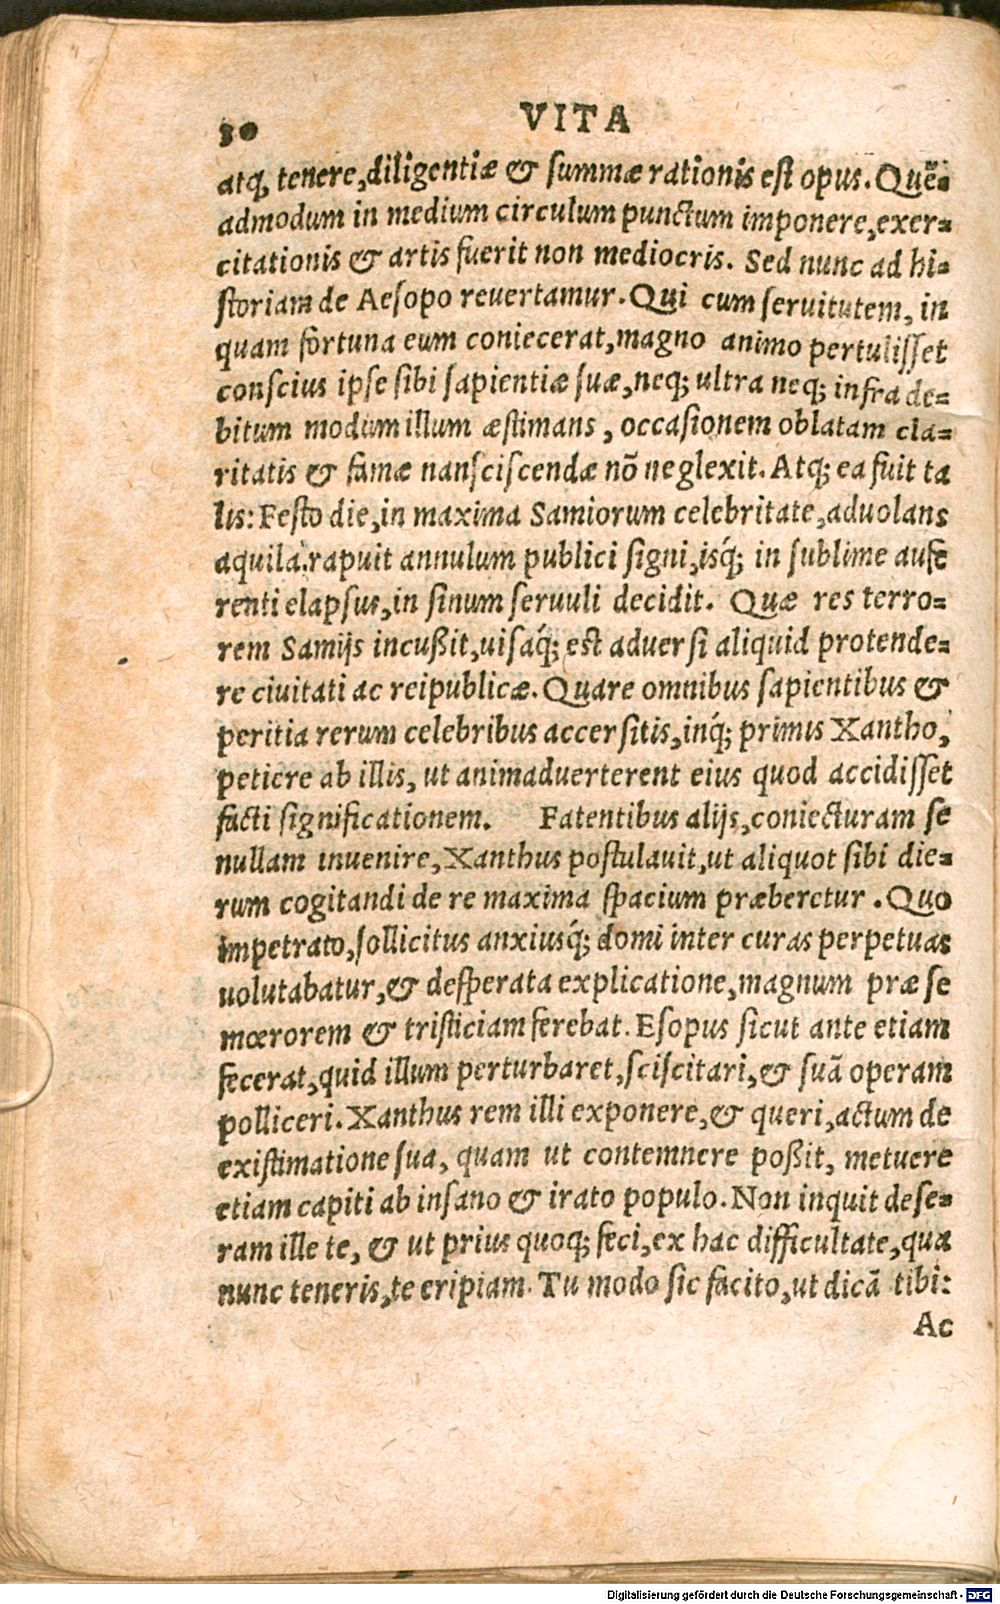 30 VITA
atq; tenere, diligentiæ & summæ rationis est opus. Quẽ
admodum in medium circulum punctum imponere, exer=
citationis & artis fuerit non mediocris. Sed nunc ad hi=
storiam de Aesopo reuertamur. Qui cum seruitutem, in
quam fortuna eum coniecerat, magno animo pertulisset
conscius ipse sibi sapientiæ suæ, neq; ultra neq; infra de=
bitum modum illum æstimans, occasionem oblatam cla=
ritatis & famæ nansciscendæ nõ neglexit. Atq; ea fuit ta
lis: Festo die, in maxima Samiorum celebritate, aduolans
aquila, rapuit annulum publici signi, isq́; in sublime aufe
renti elapsus, in sinum seruuli decidit. Quæ res terro=
rem Samijs incußit, uisaq́; est aduersi aliquid protende=
re ciuitati ac reipublicæ. Quare omnibus sapientibus &
peritia rerum celebribus accersitis, inq́; primis Xantho,
petiere ab illis, ut animaduerterent eius quod accidisset
facti significationem. Fatentibus alijs, coniecturam se
nullam inuenire, Xanthus postulauit, ut aliquot sibi die=
rum cogitandi de re maxima spacium præberetur. Quo
impetrato, sollicitus anxiusq́; domi inter curas perpetuas
uolutabatur, & desperata explicatione, magnum præ se
mœrorem & tristiciam ferebat. Esopus sicut ante etiam
fecerat, quid illum perturbaret, sciscitari, & suã operam
polliceri. Xanthus rem illi exponere, & queri, actum de
existimatione sua, quam ut contemnere poßit, metuere
etiam capiti ab insano & irato populo. Non inquit dese=
ram ille te, & ut prius quoq; feci, ex hac difficultate, qua
nunc teneris, te eripiam. Tu modo sic facito, ut dicã tibi:
Ac
Digitalisierung gefördert durch die Deutsche Forschungsgemeinschaft - DFG